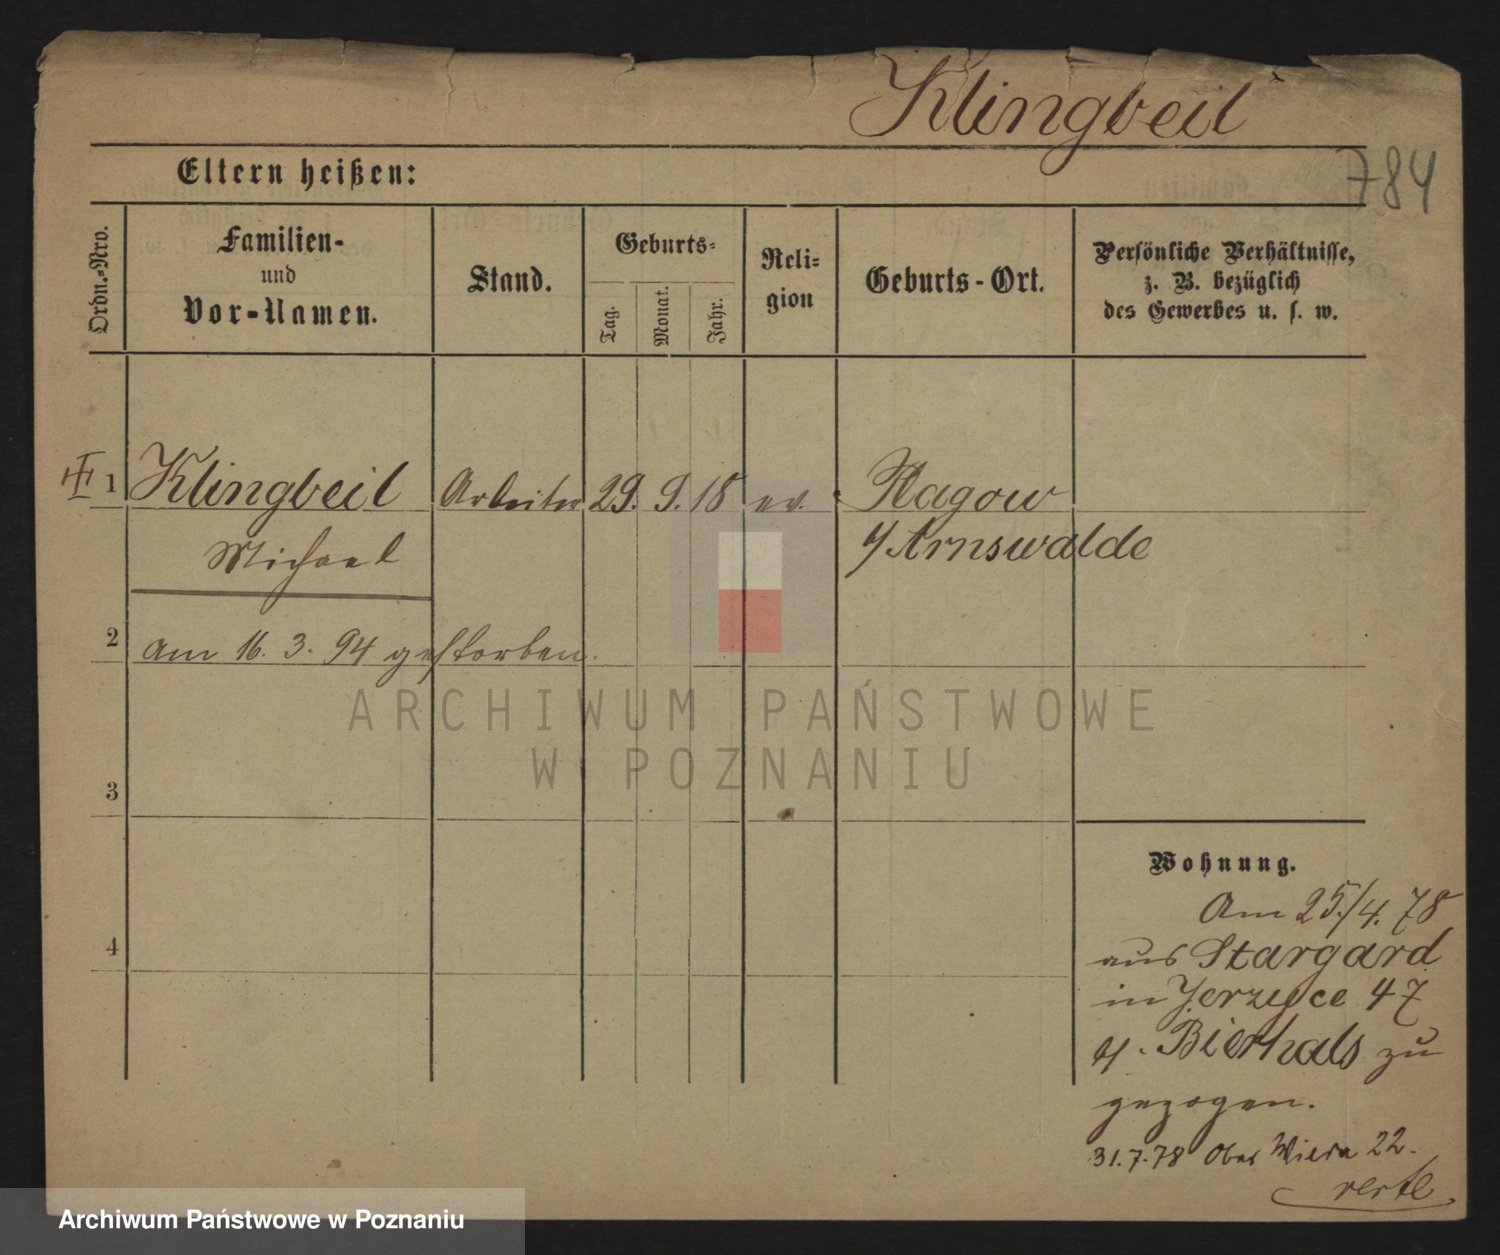 Klingbeil
784
Eltern heißen:
Ordn.-Nro.
Familien-
und
Vor-Namen.
Stand.
Geburts-
Tag.
Monat.
Jahr.
Reli-
gion
Geburts-Ort.
Persönliche Verhältnisse,
z. B. bezüglich
des Gewerbes u. s. w.
1 Klingbeil Arbeiter 29. 9. 18 ev. Ragow
Michael
Arnswalde
2 am 16. 3. 94 gestorben.
ARCHIWUM PAŃSTWOWE
W POZNANIU
3
Wohnung.
4
Am 25./4. 78
aus Stargard
in Jerzyce 47
Bierhals zu
gezogen.
31.7.78 Ober Wilda 22.
Archiwum Państwowe w Poznaniu